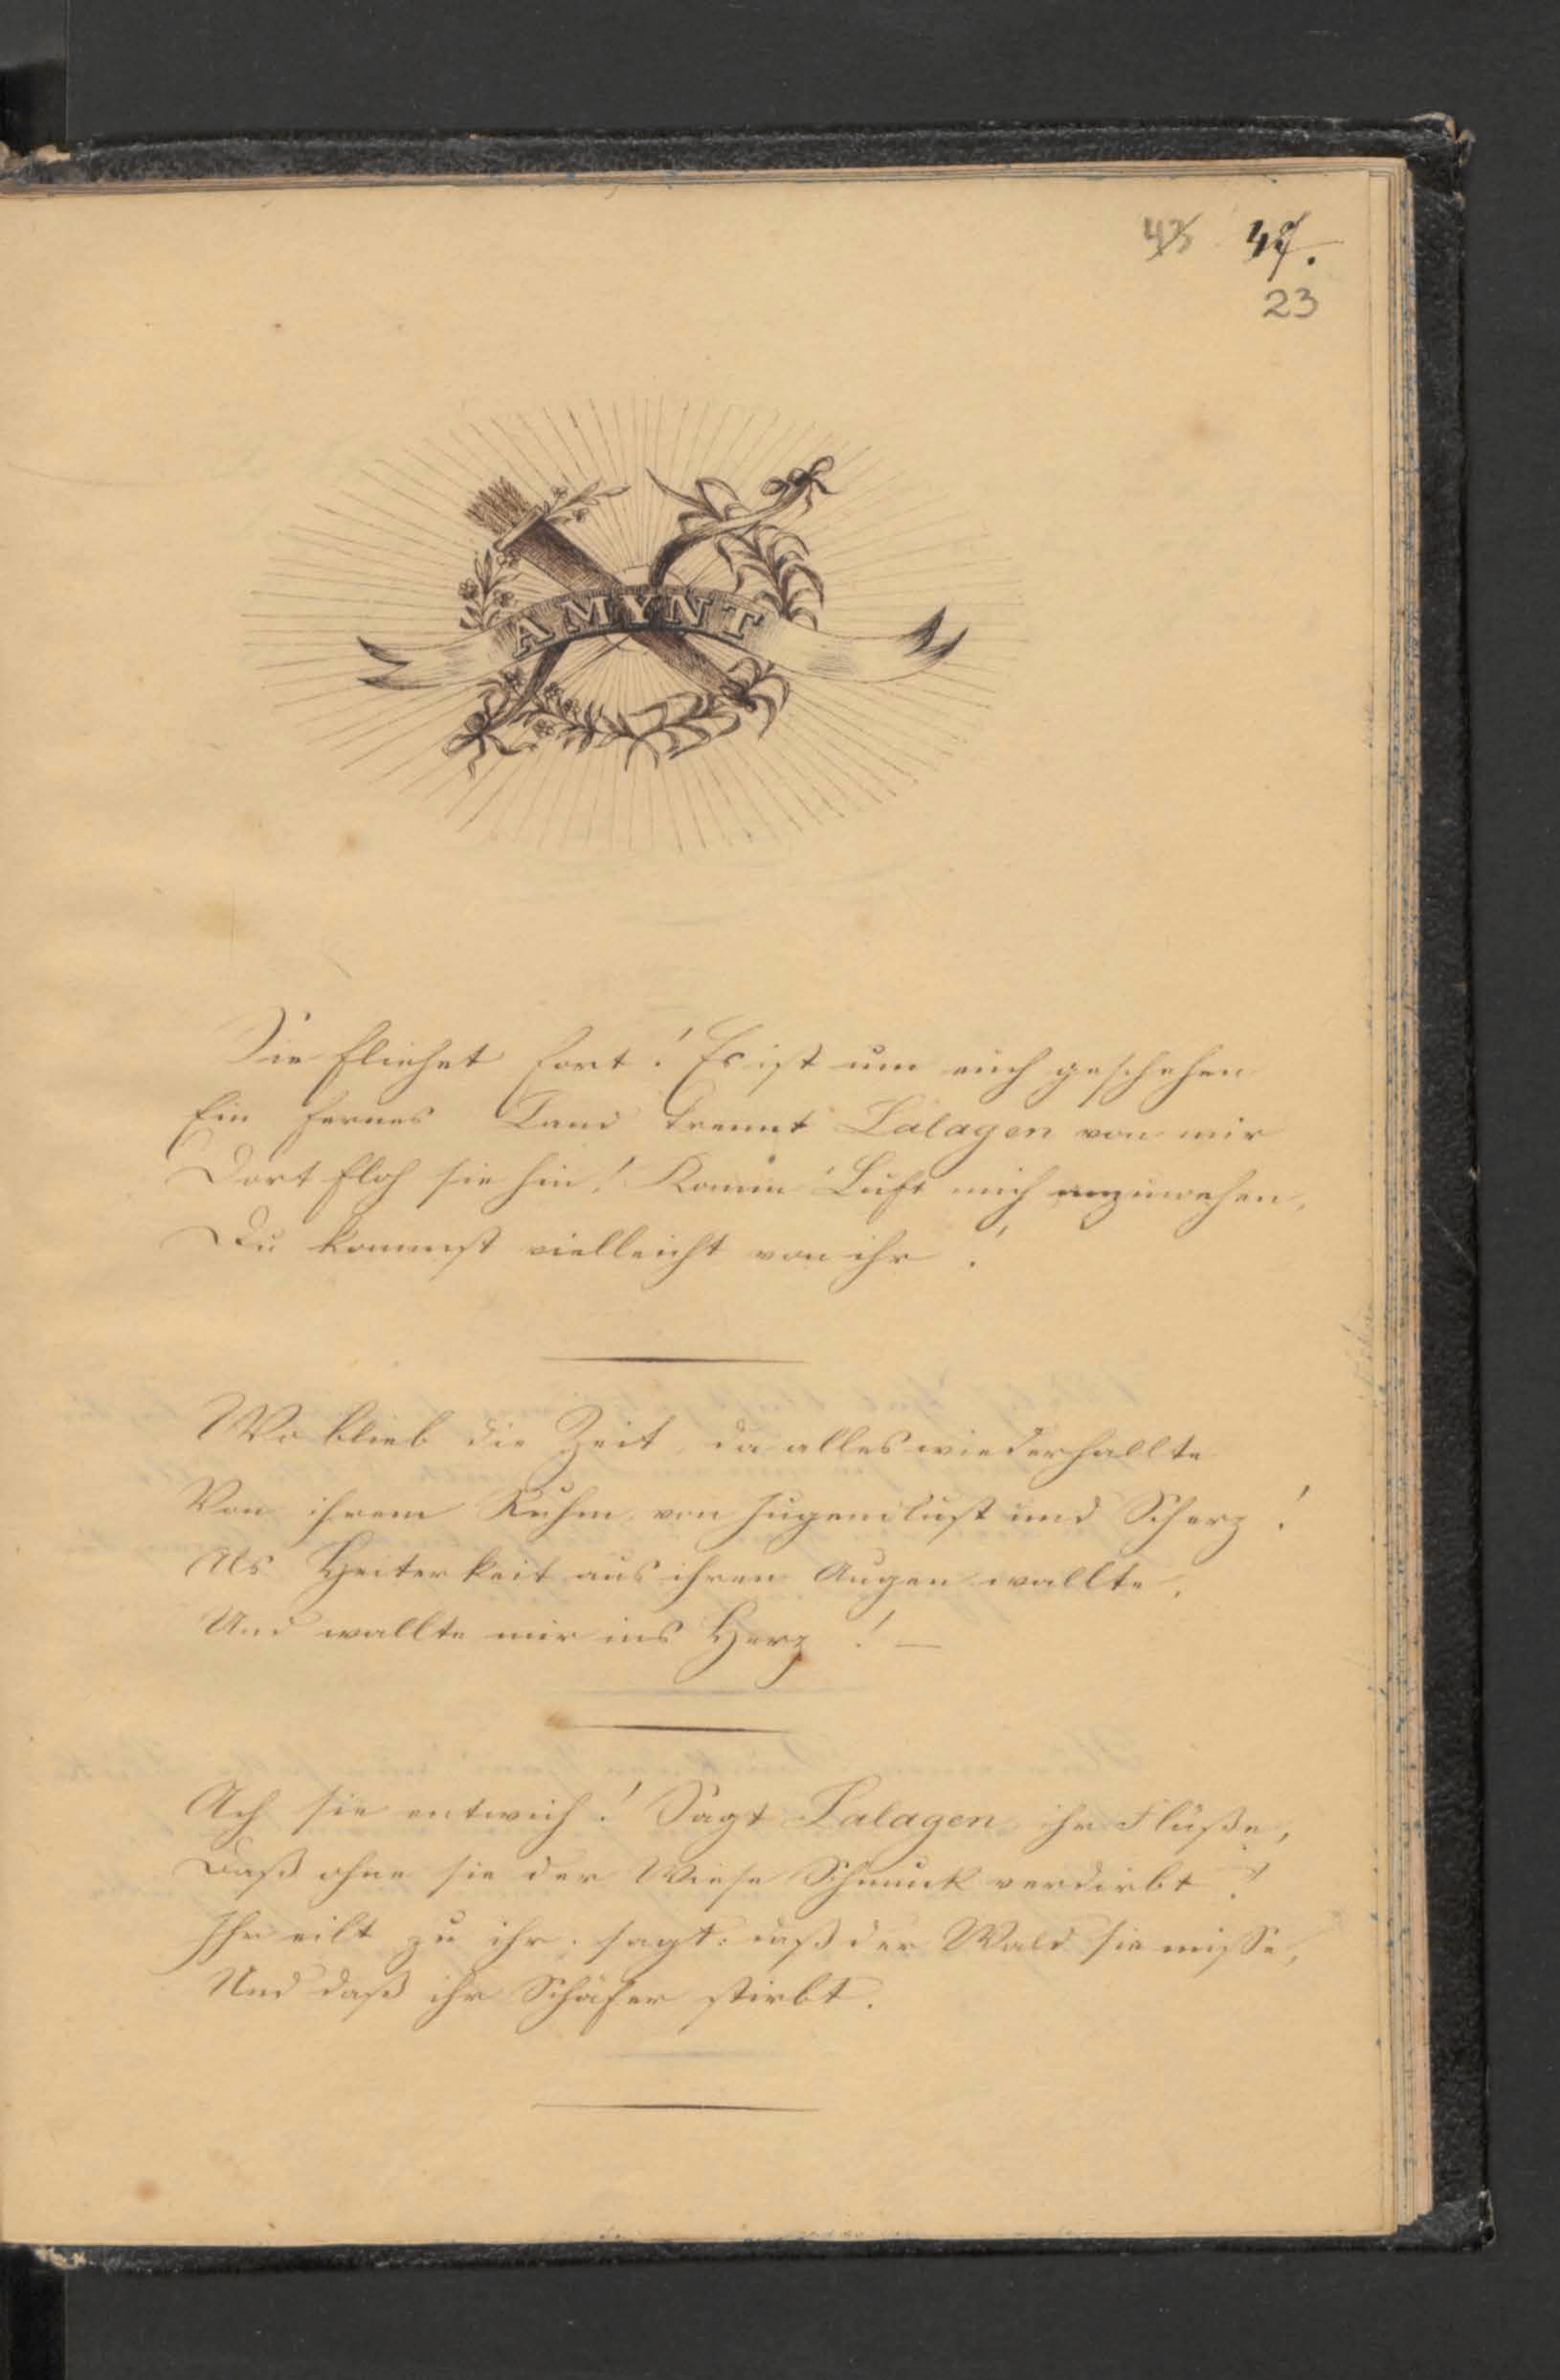 43 47.
23
AMYNT
Sie fliehet fort! Es ist um mich geschehen
Ein fernes Land trennt Lalagen von mir
Dort floh sie hin! Komm Luft mich anzuwehen,
Du kommst vielleicht von ihr!
Wo blieb die Zeit, da alles wiederhallte
Von ihrem Ruhm von Jugendlust und Scherz!
Als Heiterkeit aus ihren Augen wallte,
Und wallte mir ins Herz! —
Ach sie entwich! Sagt Lalagen ihr Flüße,
Daß ohne sie der Wiese Schmuck verdirbt!
Ihr eilt zu ihr. sagt: daß der Wald sie misse,
Und daß ihr Schäfer stirbt.